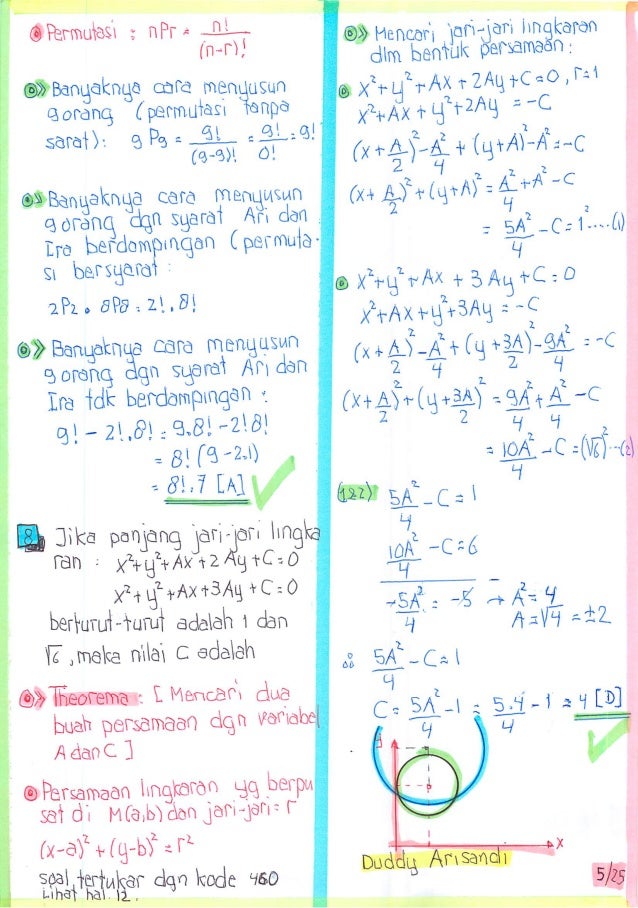 Permutasi : nPr = n!/(n-r)!
Banyaknya cara menyusun
9 orang (permutasi tanpa
sarat): 9P9 = 9!/(9-9)! = 9!/0! = 9!
Banyaknya cara menyusun
9 orang dgn syarat Ari dan
Ira berdampingan (permuta-
si bersyarat :
2P2 . 8P8 = 2!.8!
Banyaknya cara menyusun
9 orang dgn syarat Ari dan
Ira tdk berdampingan :
9! - 2!.8! = 9.8! - 2!8!
= 8! (9 - 2.1)
= 8!.7 [A]
8 Jika panjang jari-jari lingka
ran : x²+y²+Ax+2Ay+C=0
x²+y²+Ax+3Ay+C=0
berturut-turut adalah 1 dan
√6, maka nilai C adalah
Theorema : [Mencari dua
buah persamaan dgn variabel
A dan C]
Persamaan lingkaran yg berpu
sat di M(a,b) dan jari-jari = r
(x-a)² + (y-b)² = r²
soal tertukar dgn kode 460
Lihat hal. 12.
Mencari jari-jari lingkaran
dlm bentuk persamaan :
x²+y²+Ax+2Ay+C=0, r=1
x²+Ax+y²+2Ay = -C
(x+A/2)²-A²/4+(y+A)²-A²=-C
(x+A/2)²+(y+A)²=A²/4+A²-C
= 5A²/4-C=1....(1)
x²+y²+Ax+3Ay+C=0
x²+Ax+y²+3Ay=-C
(x+A/2)²-A²/4+(y+3A/2)²-9A²/4=-C
(x+A/2)²+(y+3A/2)²=9A²/4+A²/4-C
= 10A²/4-C=(√6)²...(2)
(1&2) 5A²/4-C=1
10A²/4-C=6
-5A²/4=-5 → A²=4
A=√4=±2
∴ 5A²/4-C=1
C=5A²/4-1=5.4/4-1=4 [D]
y
x
Duddy Arisandi
5/25